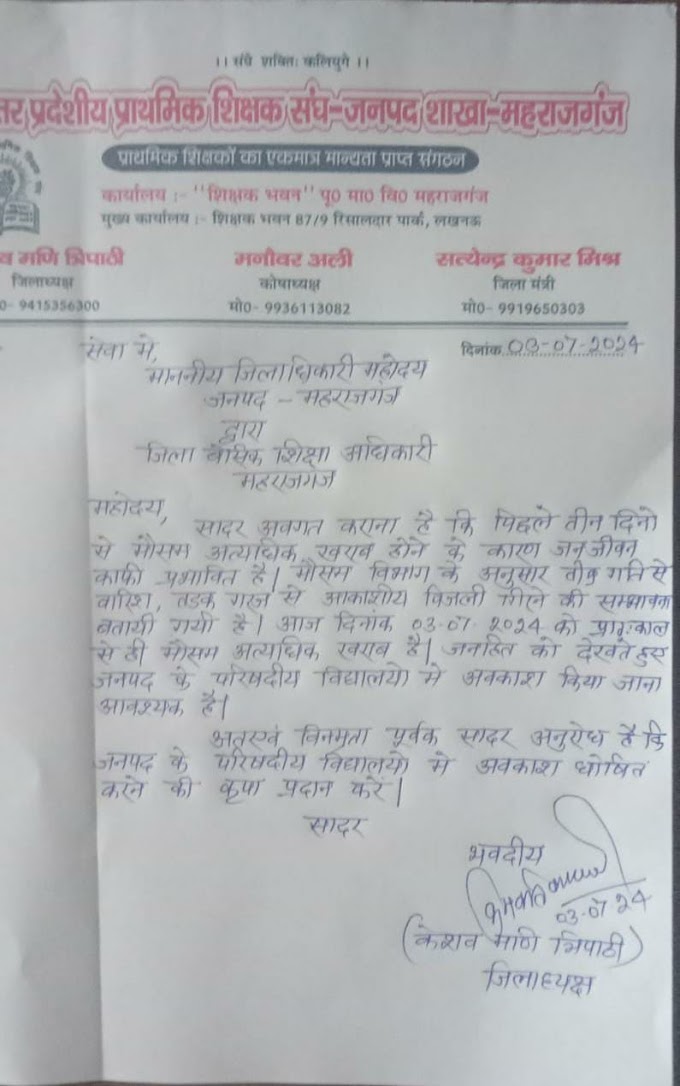 ।। संघे शक्तिः कलियुगे ।।
तर प्रदेशीय प्राथमिक शिक्षक संघ-जनपद शाखा-महराजगंज
प्राथमिक शिक्षकों का एकमात्र मान्यता प्राप्त संगठन
कार्यालय :- "शिक्षक भवन" पू0 मा0 वि0 महराजगंज
मुख्य कार्यालय :- शिक्षक भवन 87/9 रिसालदार पार्क, लखनऊ
व मणि त्रिपाठी मनौवर अली सत्येन्द्र कुमार मिश्र
जिलाध्यक्ष कोषाध्यक्ष जिला मंत्री
0- 9415356300 मो0- 9936113082 मो0- 9919650303
सेवा मे, दिनांक 03-07-2024
माननीय जिलाधिकारी महोदय
जनपद - महराजगंज
द्वारा
जिला बेसिक शिक्षा अधिकारी
महराजगंज
महोदय,
सादर अवगत कराना है कि पिछले तीन दिनो
से मौसम अत्यधिक खराब होने के कारण जनजीवन
काफी प्रभावित है। मौसम विभाग के अनुसार तीव्र गति से
वारिश, तडक गरज से आकाशीय विजली गिरने की सम्भावना
बतायी गयी है। आज दिनांक 03.07.2024 को प्रातःकाल
से ही मौसम अत्यधिक खराब है। जनहित को देखते हुए
जनपद के परिषदीय विद्यालयो मे अवकाश किया जाना
आवश्यक है।
अतएवं विनम्रता पूर्वक सादर अनुरोध है कि
जनपद के परिषदीय विद्यालयो मे अवकाश घोषित
करने की कृपा प्रदान करें।
सादर
भवदीय
03.07.24
(केशव मणि त्रिपाठी)
जिलाध्यक्ष